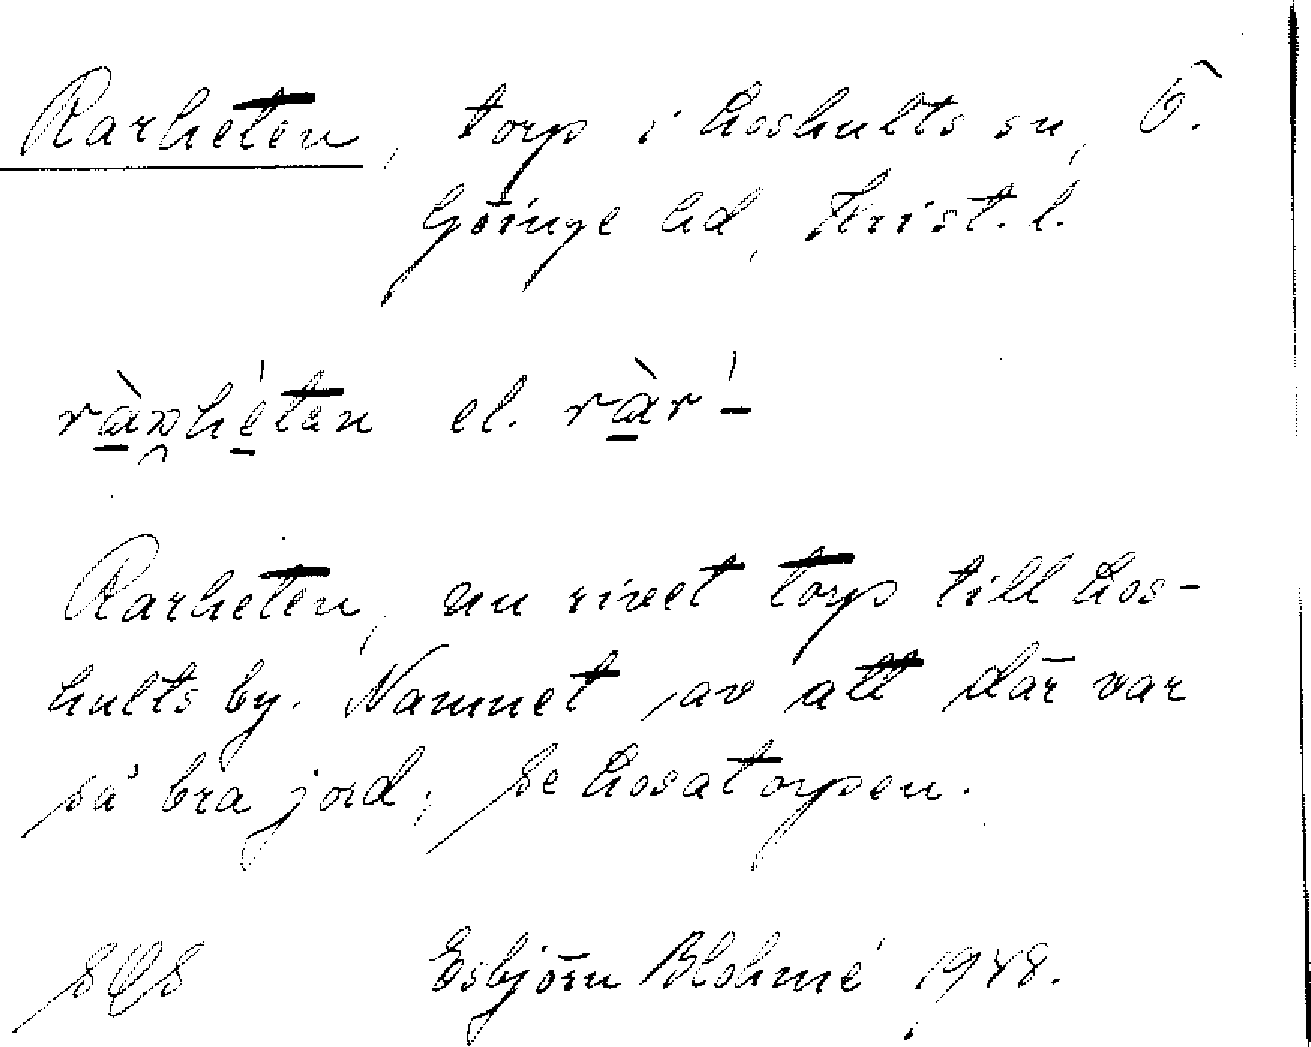 Rarheten, torp i Loshults sn, Ö.
Göinge hd, Krist. l.
rànhéten el. ràr-́
Rarheten, nu rivet torp till Los-
hults by. Namnet av att där var
så bra jord; se Losatorpen.
Esbjörn Blohmé 1948.